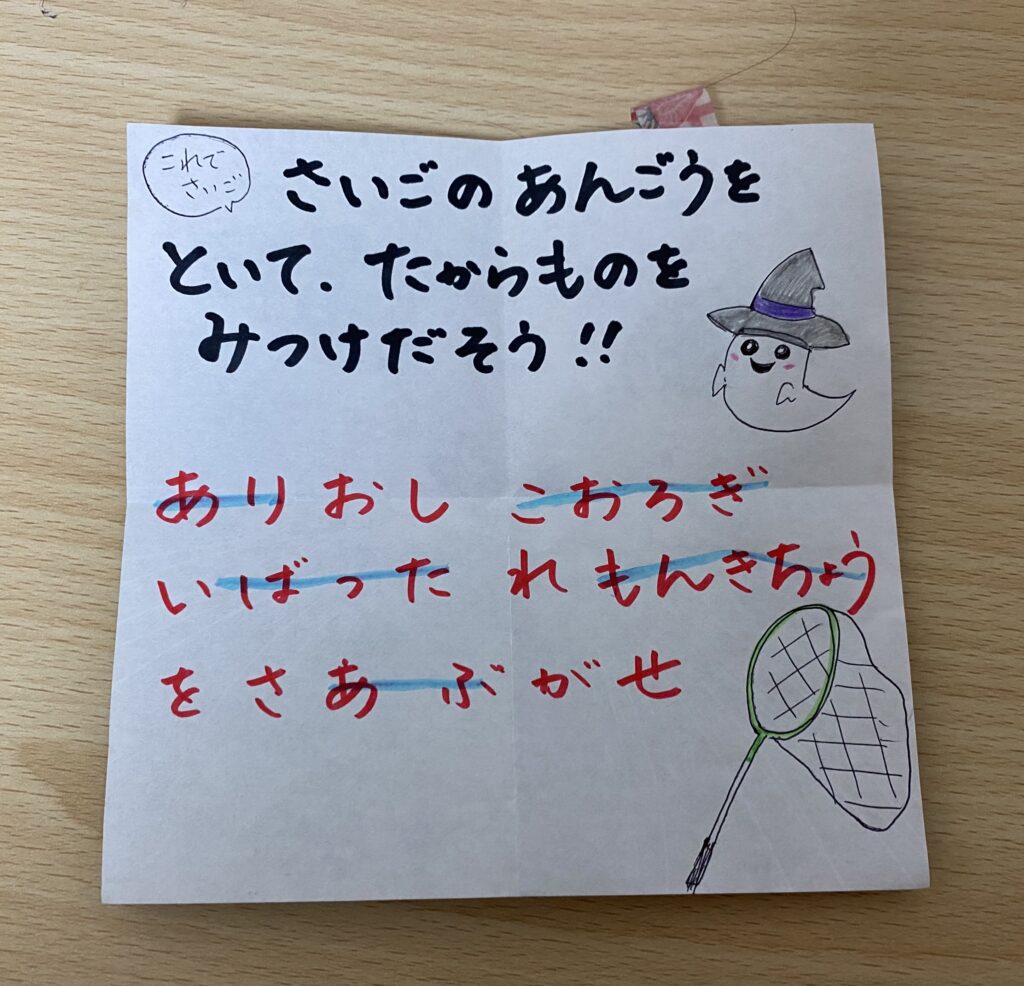 これで
さいご
さいごのあんごうを
といて．たからものを
みつけだそう!!
ありおし こおろぎ
いばった れもんきちょう
をさあぶがせ